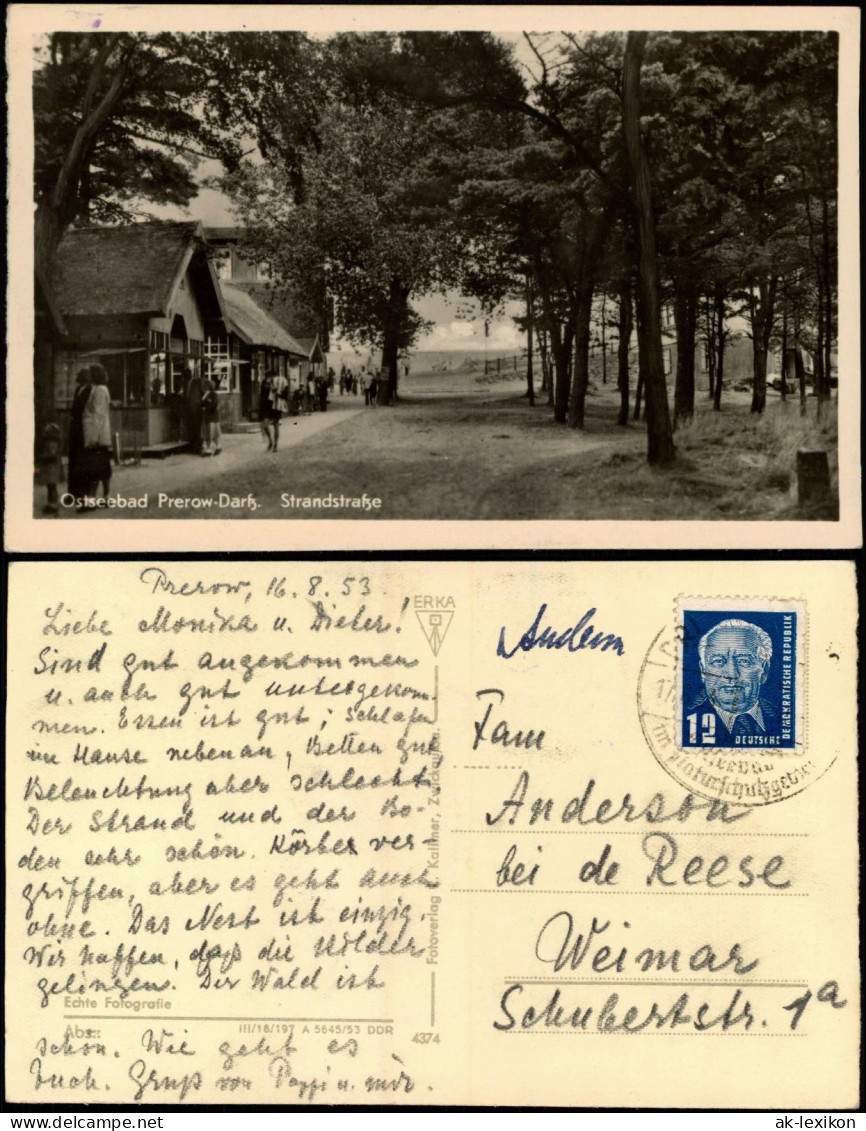 Ostseebad Prerow-Darß. Strandstraße
Prerow, 16.8.53
Liebe Monika u. Dieter!
Sind gut angekommen
u. auch gut untergekom-
men. Essen ist gut; Schlafen
im Hause nebenan, Betten gut
Beleuchtung aber schlecht.
Der Strand und der Bo-
den sehr schön. Körbe ver-
griffen, aber es geht auch
ohne. Das Nest ist einzig.
Wir hoffen, daß die Bilder
gelingen. Der Wald ist
schön. Wie geht es
Euch. Gruß von Pappi u. mir.
Echte Fotografie
Abs.:
III/18/197 A 5645/53 DDR
4374
ERKA
Fotoverlag Kallmer, Zwickau
Fam
Anderson
bei de Reese
Weimar
Schubertstr. 1a
12
DEUTSCHE
DEMOKRATISCHE REPUBLIK
im Naturschutzgebiet
ak-lexikon